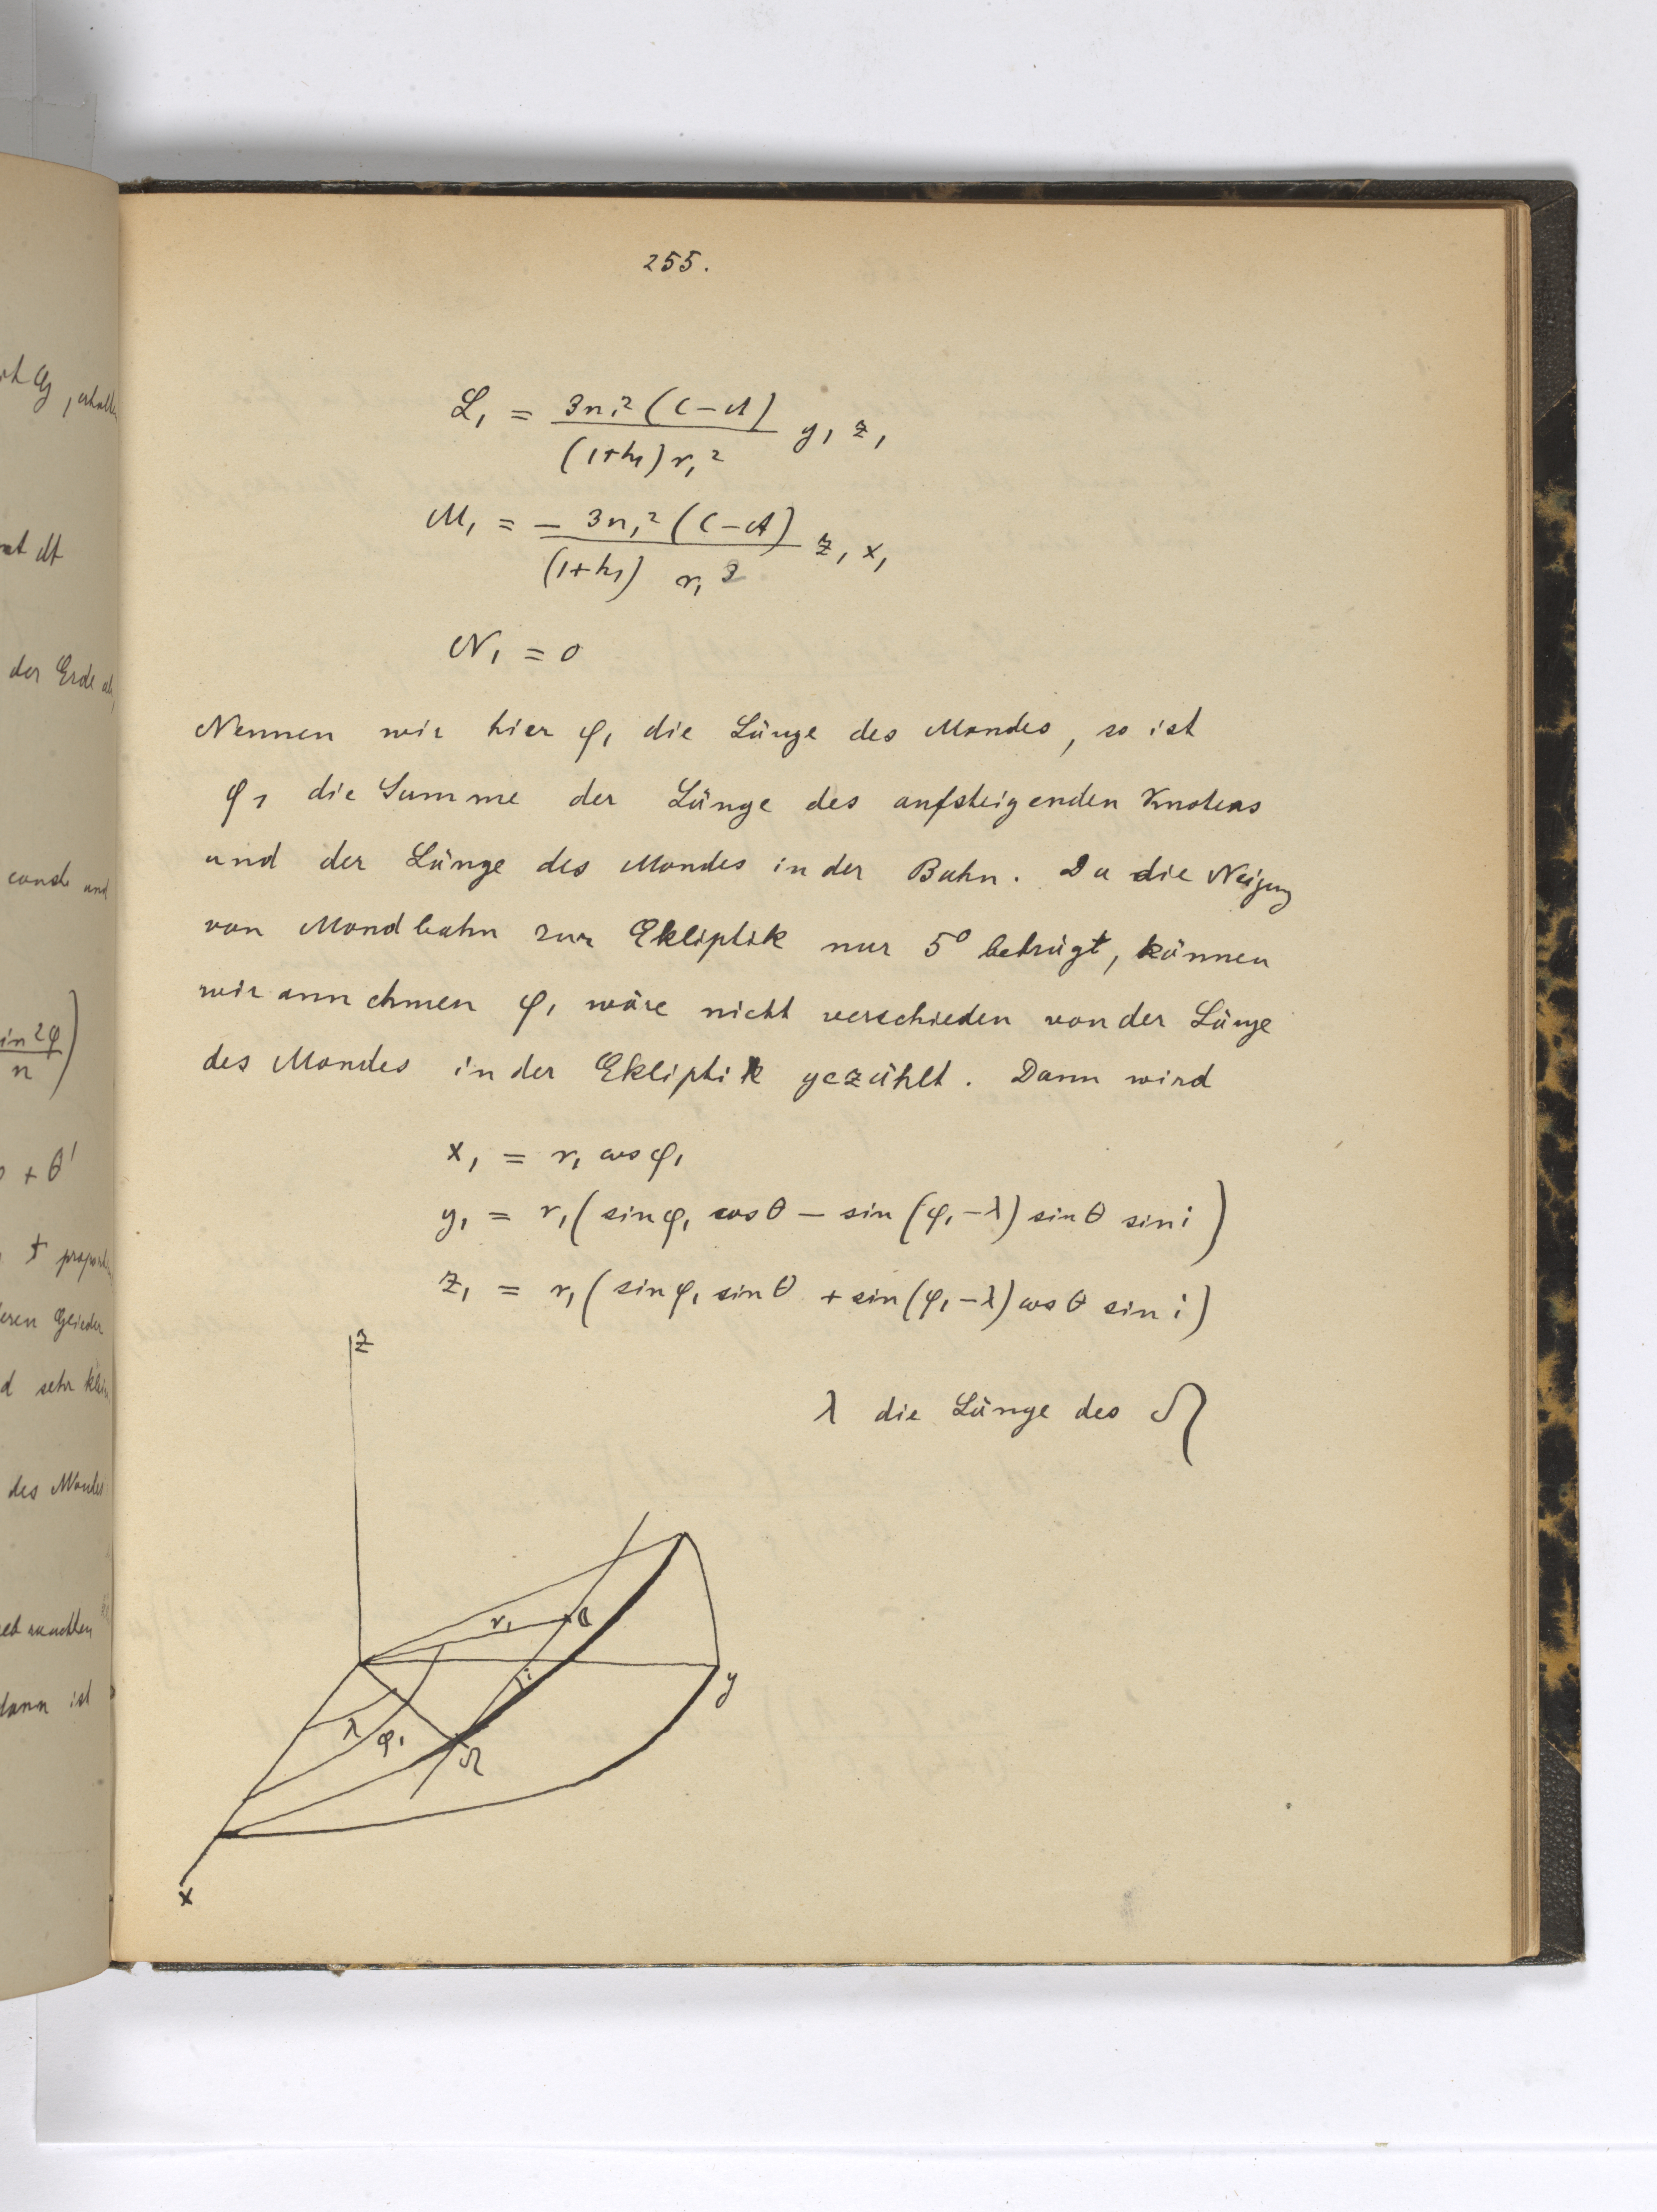 255.
L₁ = 3n₁² (C-A) / (1+h₁) r₁² y₁ z₁
M₁ = - 3n₁² (C-A) / (1+h₁) r₁² z₁ x₁
N₁ = 0
Nennen wir hier φ₁ die Länge des Mondes, so ist
φ₁ die Summe der Länge des aufsteigenden Knotens
und der Länge des Mondes in der Bahn. Da die Neigung
von Mondbahn zur Ekliptik nur 5° beträgt, können
wir annehmen φ₁ wäre nicht verschieden von der Länge
des Mondes in der Ekliptik gezählt. Dann wird
x₁ = r₁ cos φ₁
y₁ = r₁ ( sin φ₁ cos θ - sin (φ₁ - λ) sin θ sin i )
z₁ = r₁ ( sin φ₁ sin θ + sin (φ₁ - λ) cos θ sin i )
z
λ die Länge des ☊
r₁ ☾
i
y
λ
φ₁
☊
x
der Erde
const und
sin 2φ
n
+ θ'
d sehr klein
des Mondes
dann ist